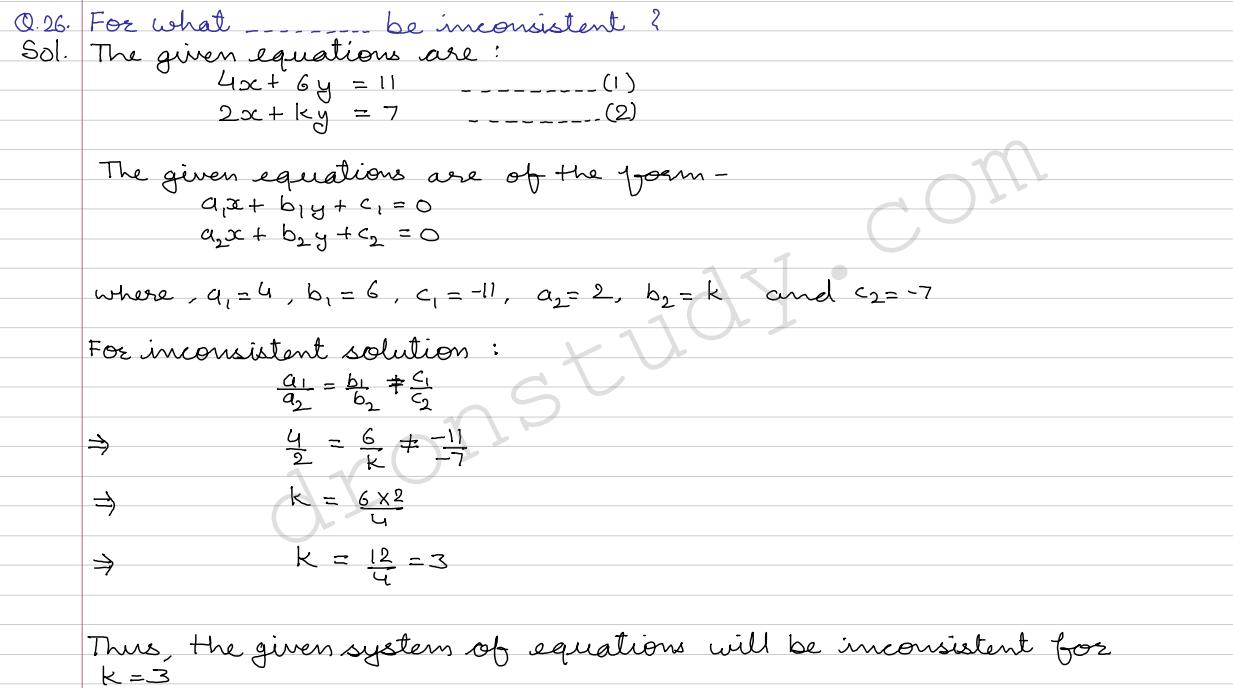 Q.26. For what ---------- be inconsistent ?
Sol. The given equations are :
4x + 6y = 11 ----------(1)
2x + ky = 7 ----------(2)
The given equations are of the form -
a₁x + b₁y + c₁ = 0
a₂x + b₂y + c₂ = 0
where, a₁ = 4, b₁ = 6, c₁ = -11, a₂ = 2, b₂ = k and c₂ = -7
For inconsistent solution :
a₁/a₂ = b₁/b₂ ≠ c₁/c₂
⇒ 4/2 = 6/k ≠ -11/-7
⇒ k = 6×2/4
⇒ k = 12/4 = 3
Thus, the given system of equations will be inconsistent for
k = 3
dronstudy.com